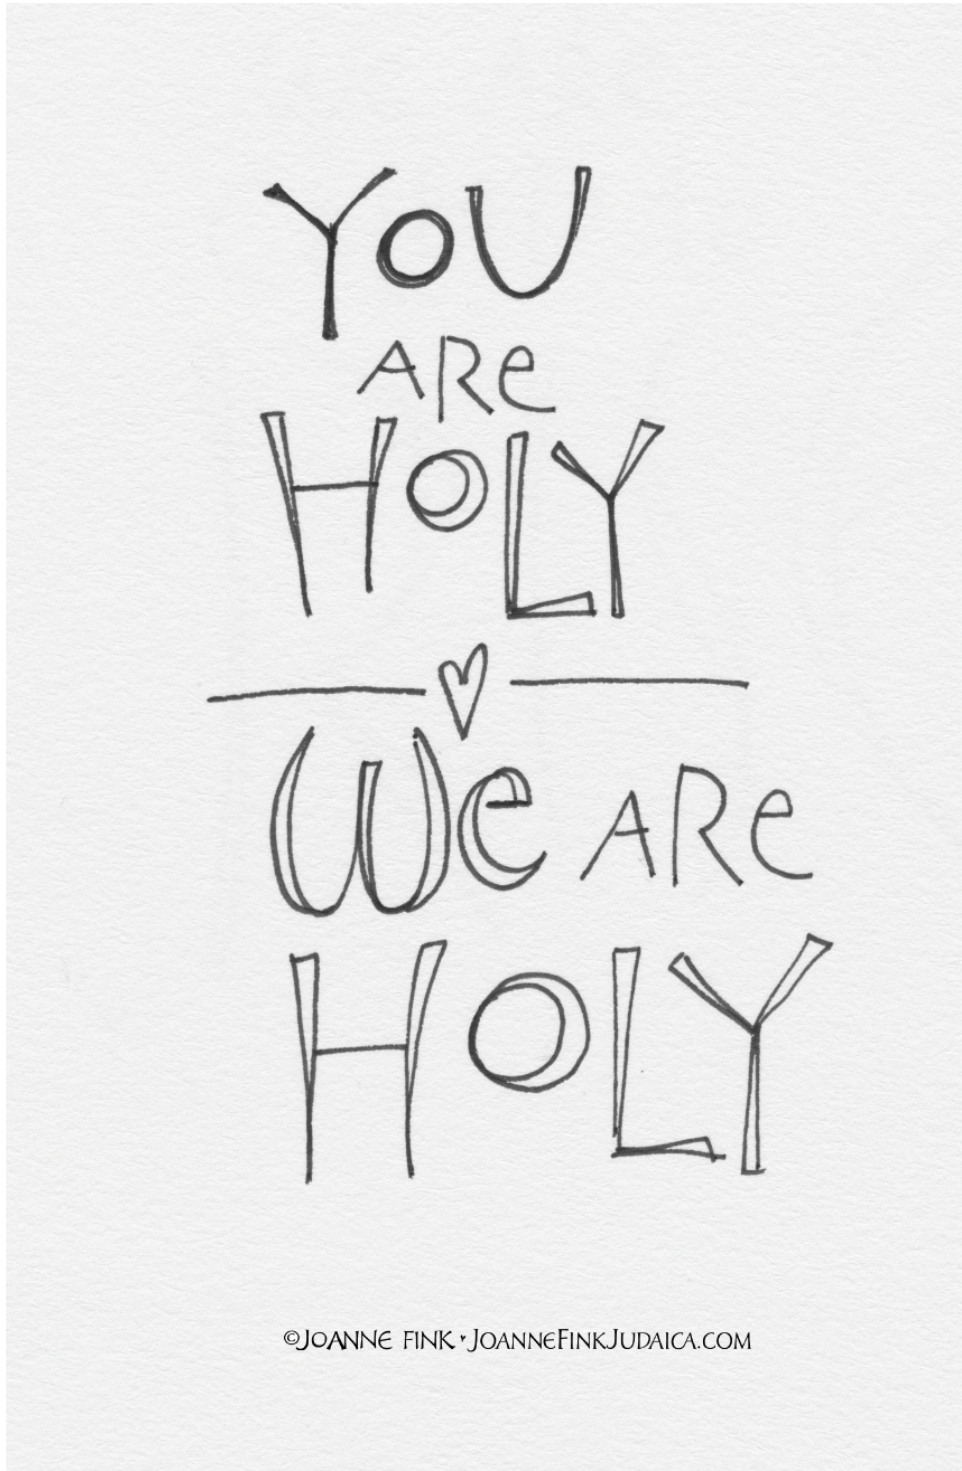 YOU
ARE
HOLY
WE ARE
HOLY
©JOANNE FINK ♥ JOANNEFINKJUDAICA.COM